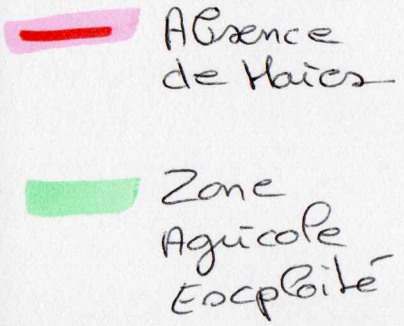 Absence
de Haies
Zone
Agricole
Exploité